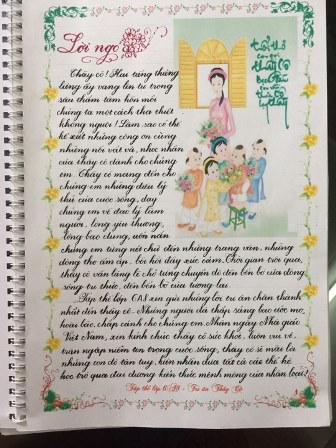 Lời ngỏ
Thầy cô! Hai tiếng thiêng
liêng ấy vang lên từ trong
sâu thẳm tâm hồn mỗi
chúng ta một cách tha thiết
khôn nguôi! Làm sao có thể
kể xiết những công ơn cùng
những nỗi vất vả, nhọc nhằn
của thầy cô dành cho chúng
em. Thầy cô mang đến cho
chúng em những điều lý
thú của cuộc sống, dạy
chúng em về đạo lý làm
người, lòng yêu thương,
lòng bao dung, uốn nắn
chúng em từng nét chữ đến những trang văn, những
dòng thơ ấm áp, bồi hồi đầy xúc cảm. Thời gian trôi qua,
thầy cô vẫn lặng lẽ chở từng chuyến đò đến bến bờ của dòng
sông tri thức, đến bến bờ của tương lai.
Tập thể lớp 6A8 xin gửi những lời tri ân chân thành
nhất đến thầy cô. Những người đã thắp sáng bao ước mơ,
hoài bão, chắp cánh cho chúng em. Nhân ngày Nhà giáo
Việt Nam, xin kính chúc thầy cô sức khỏe, luôn vui vẻ,
tràn ngập niềm tin trong cuộc sống, thầy cô sẽ mãi là
những con đò tận tụy, luôn nhẫn đưa tất cả các thế hệ
học trò qua đại dương kiến thức mênh mông của nhân loại!
Tập thể lớp 6A8 - Tri ân Thầy Cô
thầy Cô